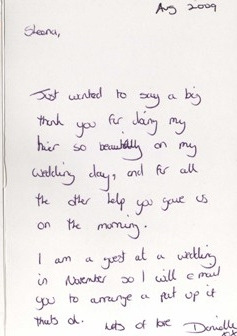 Aug 2009
Sheena,
Just wanted to say a big
thank you for doing my
hair so beautifully on my
wedding day, and for all
the other help you gave us
on the morning.
I am a guest at a wedding
in November so I will email
you to arrange a put up if
thats ok. Lots of love Danielle